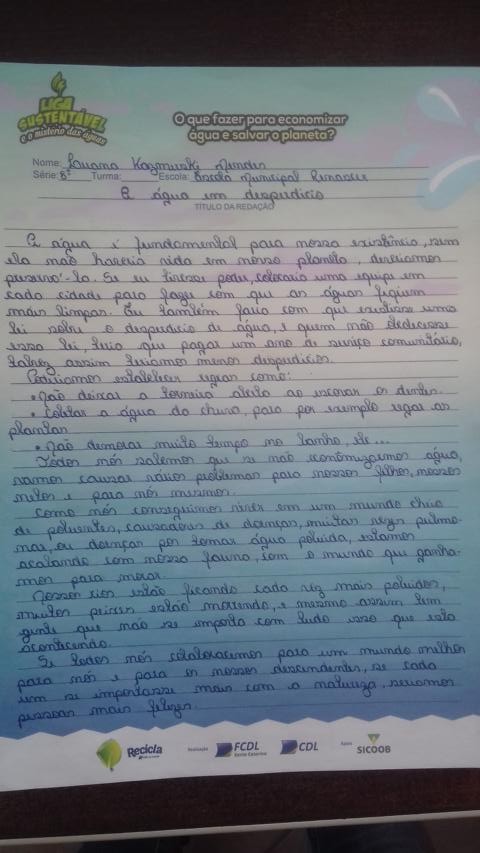 LIGA
SUSTENTÁVEL
e o mistério das águas
O que fazer para economizar
água e salvar o planeta?
Nome: Lauana Kazmirski
Série: 8º Turma: Escola: Escola Municipal Renascer
A água em desperdício
TÍTULO DA REDAÇÃO
A água é fundamental para nossa existência, sem
ela não haveria vida em nosso planeta, deveriamos
preservá-la. Se eu tivesse poder, colocaria uma equipe em
cada cidade para fazer com que as águas fiquem
mais limpas. Eu também faria com que existisse uma
lei sobre o desperdicio de água, e quem não obedecesse
essa lei, teria que pagar um ano de serviço comunitário,
talvez assim teriamos menos desperdicios.
Poderiamos estabelecer regras como:
• Não deixar a torneira aberta ao escovar os dentes.
• Coletar a água da chuva, para por exemplo regar as
plantas
• Não demorar muito tempo no banho, etc...
Todos nós sabemos que se não econômizarmos água,
vamos causar vários problemas para nossos filhos, nossos
netos e para nós mesmos.
Como nós conseguimos viver em um mundo cheio
de poluentes, causadores de doenças, muitas vezes pulmo-
nas, ou doenças por tomar água poluida, estamos
acabando com nossa fauna, com o mundo que ganha-
mos para morar.
Nossos rios estão ficando cada vez mais poluidos,
muitos peixes estão morrendo, e mesmo assim tem
gente que não se importa com tudo isso que está
acontecendo.
Se todos nós colaborassemos para um mundo melhor
para nós e para os nossos descendentes, se cada
um se importasse mais com a natureza, seriamos
pessoas mais felizes.
Recicla
Realização
FCDL
Santa Catarina
CDL
Apoio
SICOOB